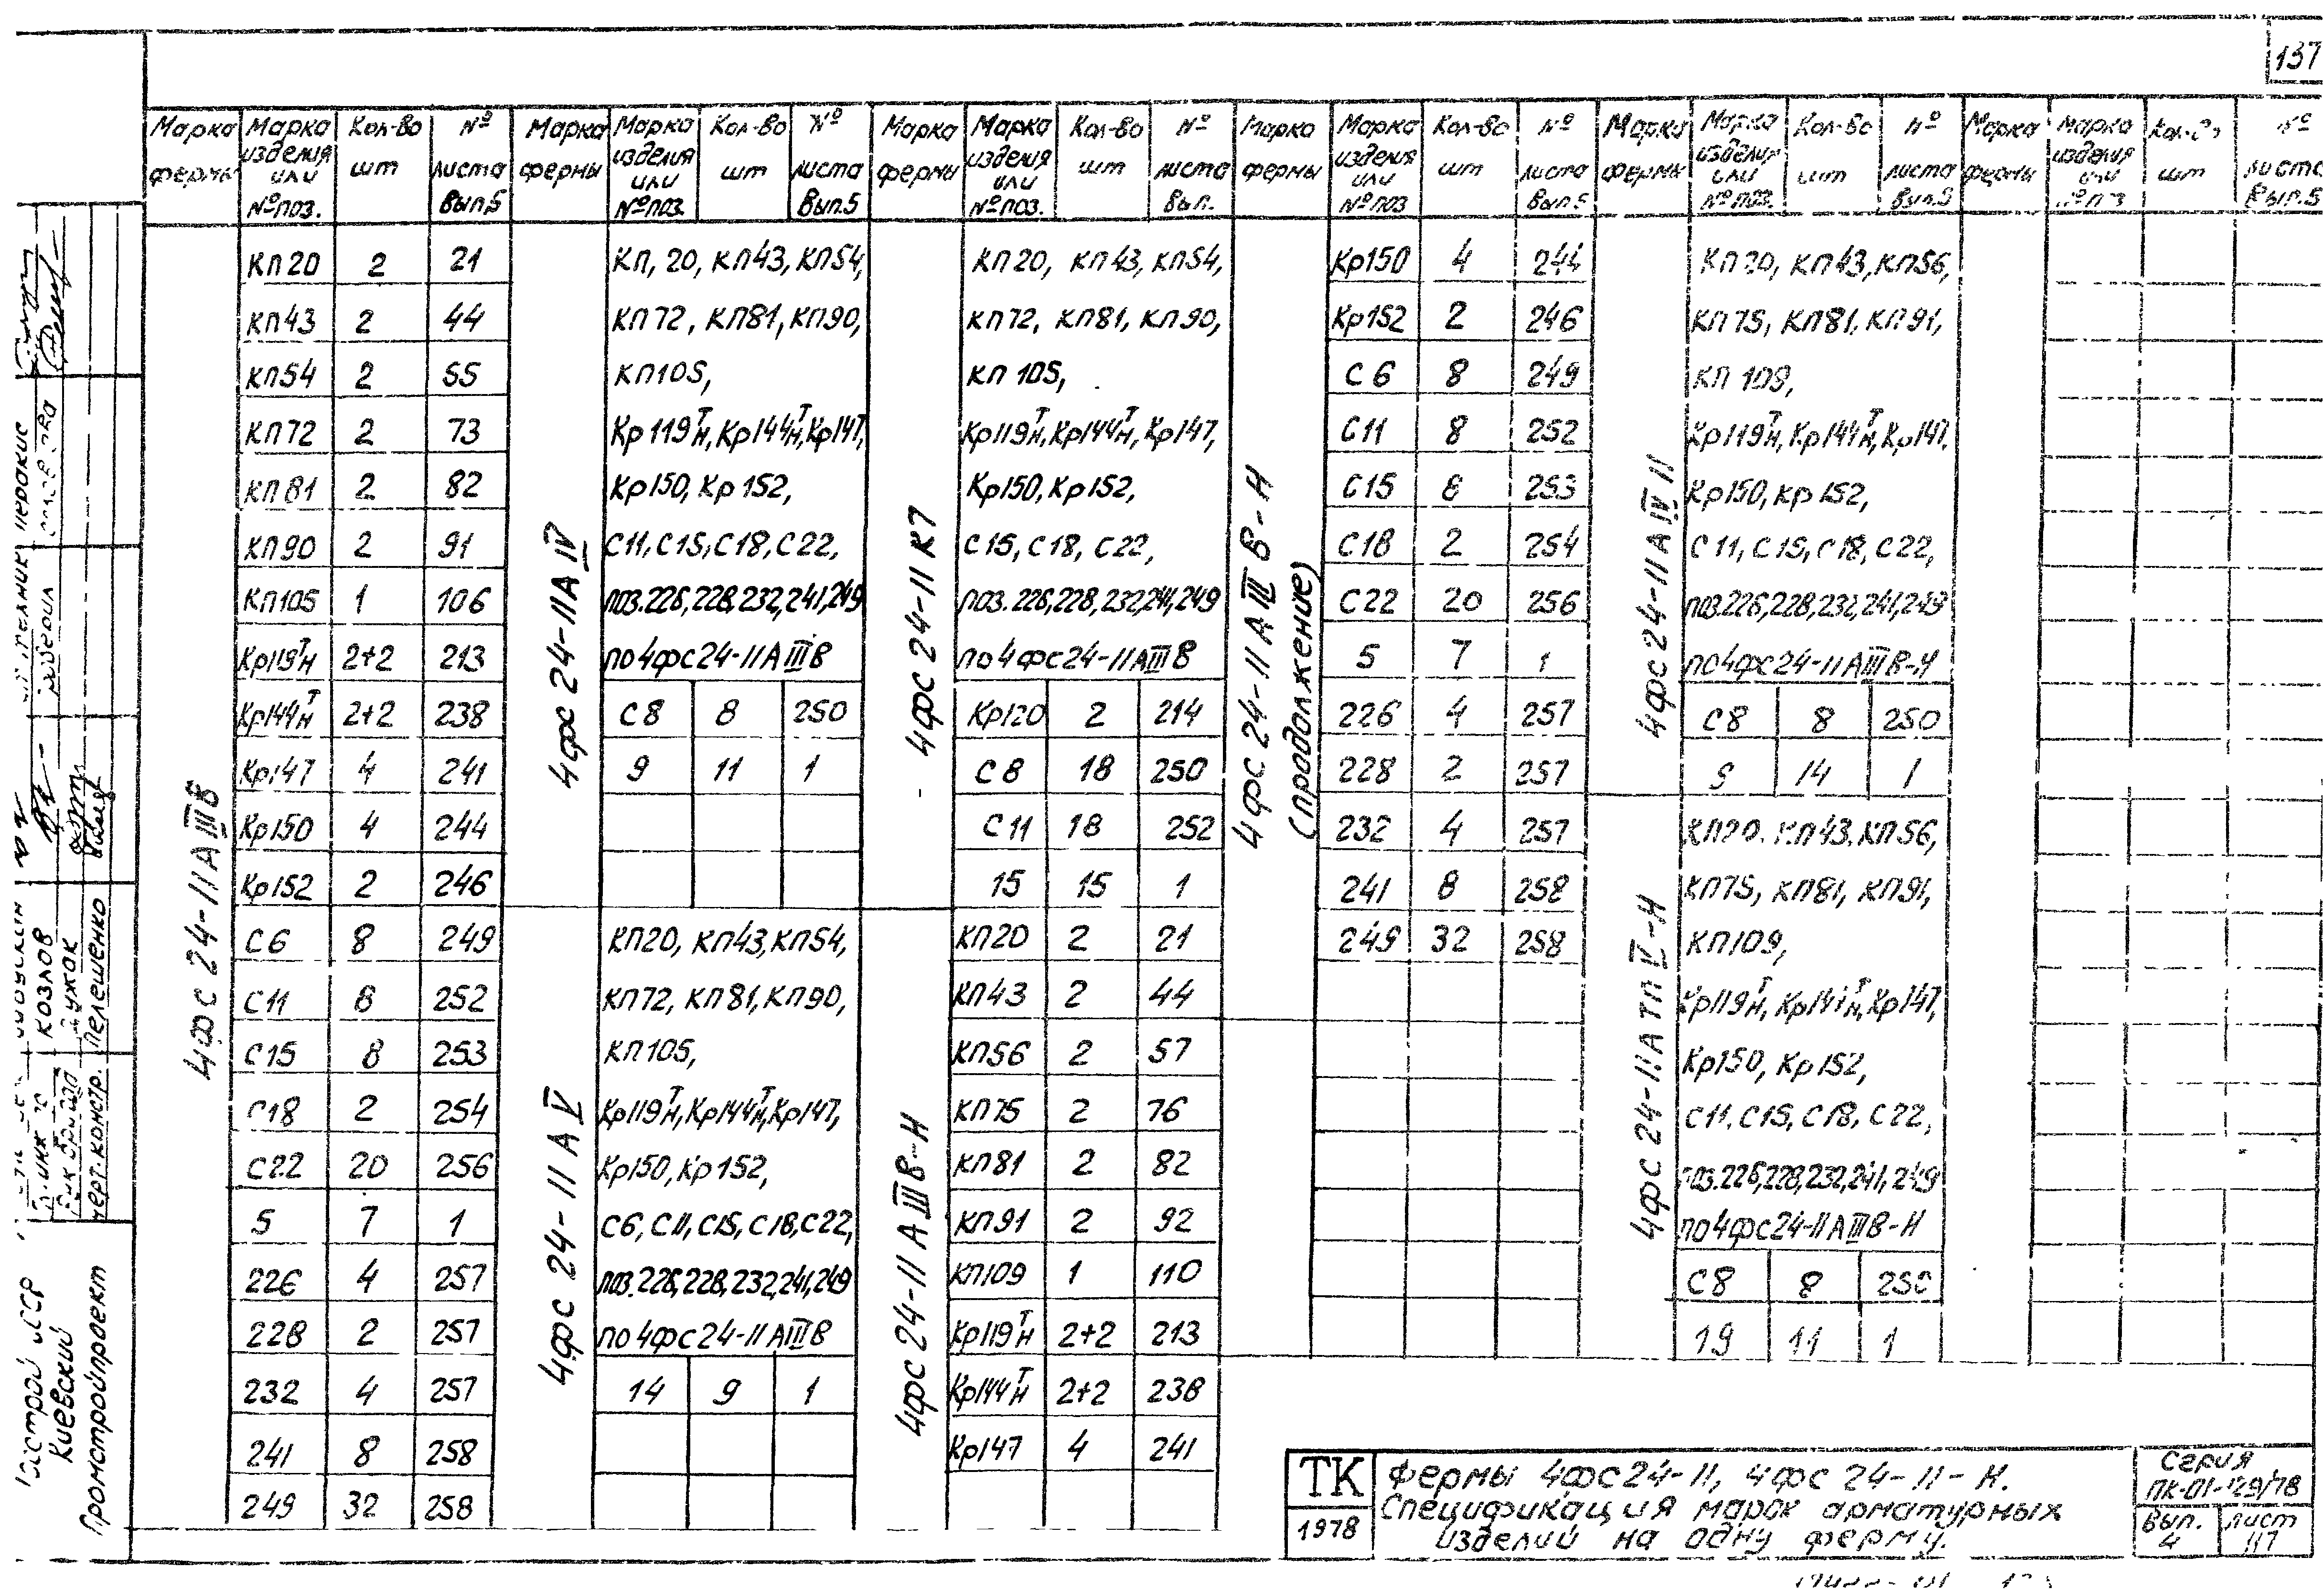 137
Марка фермы | Марка изделия или № поз. | Кол-во шт | № листа Вып.5 | Марка фермы | Марка изделия или № поз. | Кол-во шт | № листа Вып.5 | Марка фермы | Марка изделия или № поз. | Кол-во шт | № листа Вып. | Марка фермы | Марка изделия или № поз | Кол-во шт | № листа Вып.5 | Марка фермы | Марка изделия или № поз. | Кол-во шт | № листа Вып.5 | Марка фермы | Марка изделия или № поз | Кол-во шт | № листа Вып.5
4фс 24-II АIIIВ
КП20 2 21
КП43 2 44
КП54 2 55
КП72 2 73
КП81 2 82
КП90 2 91
КП105 1 106
Кр119тн 2+2 213
Кр144тн 2+2 238
Кр147 4 241
Кр150 4 244
Кр152 2 246
С6 8 249
С11 8 252
С15 8 253
С18 2 254
С22 20 256
5 7 1
226 4 257
228 2 257
232 4 257
241 8 258
249 32 258
4фс 24-II АIV
КП, 20, КП43, КП54,
КП72, КП81, КП90,
КП105,
Кр119тн, Кр144тн, Кр147,
Кр150, Кр152,
С11, С15, С18, С22,
поз. 226, 228, 232, 241, 249
по 4фс24-II АIIIВ
С8 8 250
9 11 1
4фс 24-II АV
КП20, КП43, КП54,
КП72, КП81, КП90,
КП105,
Кр119тн, Кр144тн, Кр147,
Кр150, Кр152,
С6, С11, С15, С18, С22,
поз. 226, 228, 232, 241, 249
по 4фс24-II АIIIВ
14 9 1
4фс 24-II К7
КП20, КП43, КП54,
КП72, КП81, КП90,
КП 105,
Кр119тн, Кр144тн, Кр147,
Кр150, Кр152,
С15, С18, С22,
поз. 226, 228, 232, 241, 249
по 4фс24-II АIIIВ
Кр120 2 214
С8 18 250
С11 18 252
15 15 1
4фс 24-II АIIIВ-Н
КП20 2 21
КП43 2 44
КП56 2 57
КП75 2 76
КП81 2 82
КП91 2 92
КП109 1 110
Кр119тн 2+2 213
Кр144тн 2+2 238
Кр147 4 241
4фс 24-II АIIIВ-Н
(продолжение)
Кр150 4 244
Кр152 2 246
С6 8 249
С11 8 252
С15 8 253
С18 2 254
С22 20 256
5 7 1
226 4 257
228 2 257
232 4 257
241 8 258
249 32 258
4фс 24-II АIV
КП20, КП43, КП56,
КП75, КП81, КП91,
КП 109,
Кр119тн, Кр144тн, Кр147,
Кр150, Кр152,
С11, С15, С18, С22,
поз. 226, 228, 232, 241, 249
по 4фс24-II АIIIВ-Н
С8 8 250
9 14 1
4фс 24-II АтпV-Н
КП20, КП43, КП56,
КП75, КП81, КП91,
КП109,
Кр119тн, Кр144тн, Кр147,
Кр150, Кр152,
С11, С15, С18, С22,
поз. 226, 228, 232, 241, 249
по 4фс24-II АIIIВ-Н
С8 8 250
19 11 1
Козлов
Пелешенко
Черт. констр.
Киевский
Промстройпроект
ТК
1978
Фермы 4фс24-II, 4фс 24-II-Н.
Спецификация марок арматурных
изделий на одну ферму.
Серия
ПК-01-129/78
Вып. 4
лист 117